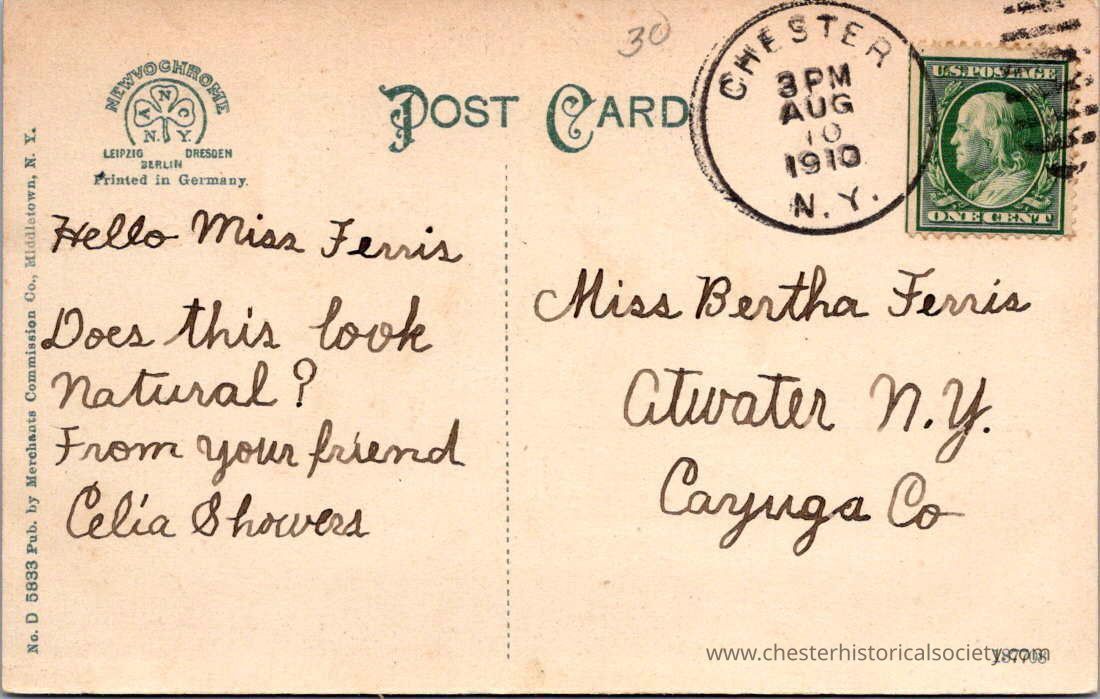 30
NEWVOCHROME
A N C
N. Y.
LEIPZIG DRESDEN
BERLIN
Printed in Germany.
POST CARD
CHESTER
3 PM
AUG
10
1910
N.Y.
U.S. POSTAGE
ONE CENT
No. D 5833 Pub. by Merchants Commission Co., Middletown, N. Y.
Hello Miss Ferris
Does this look
Natural?
From your friend
Celia Showers
Miss Bertha Ferris
Atwater N.Y.
Cayuga Co
www.chesterhistoricalsociety.com